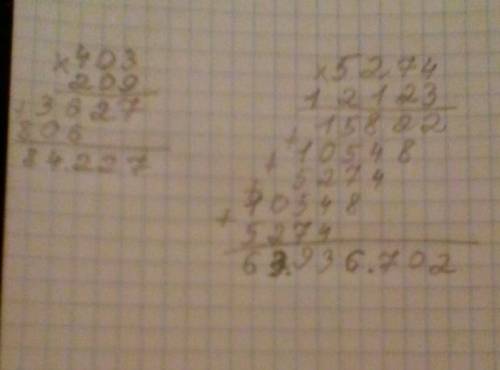 ×403
209
+3627
806
84.227
×5274
12123
15822
+10548
+5274
+10548
+5274
63.936.702